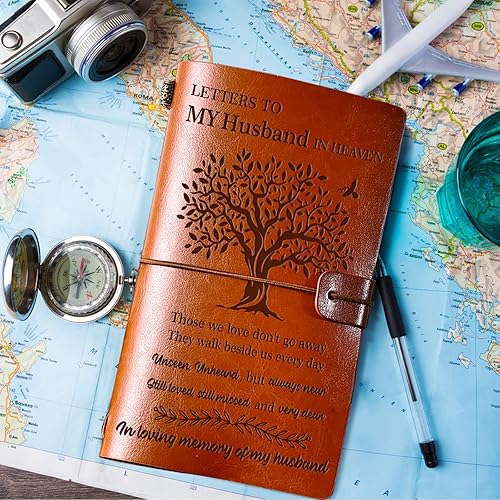 LETTERS TO
MY Husband IN HEAVEN
Those we love don't go away
They walk beside us every day
Unseen, Unheard, but always near
Still loved, still missed and very dear
In loving memory of my husband